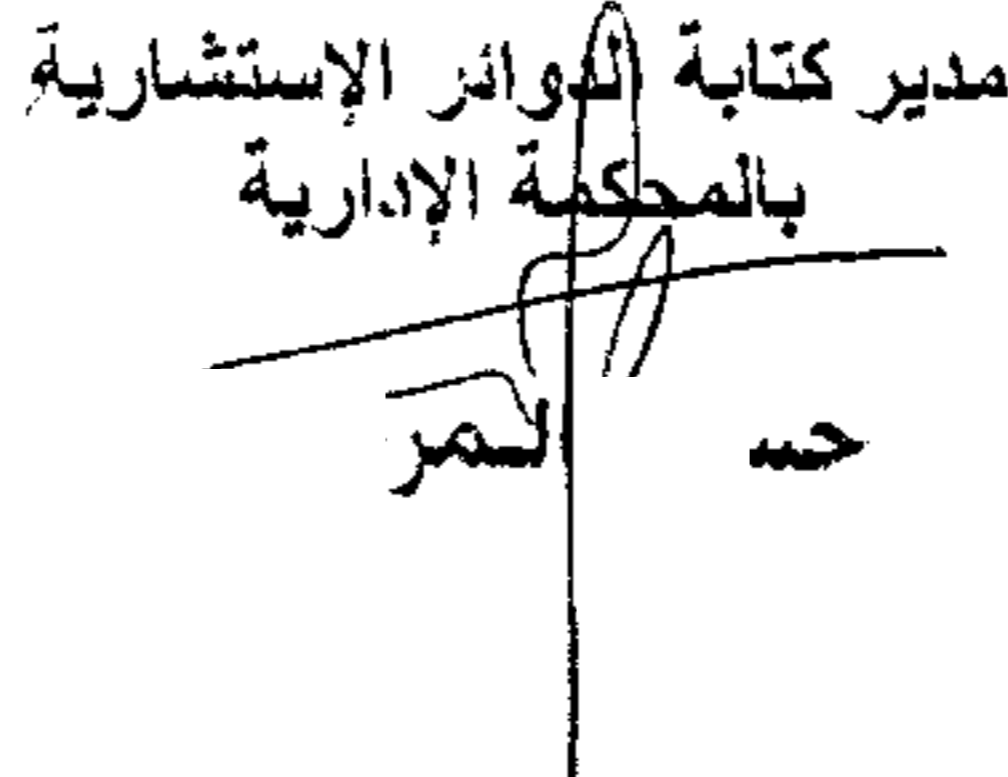 مدير كتابة الدوائر الإستشارية
بالمحكمة الإدارية